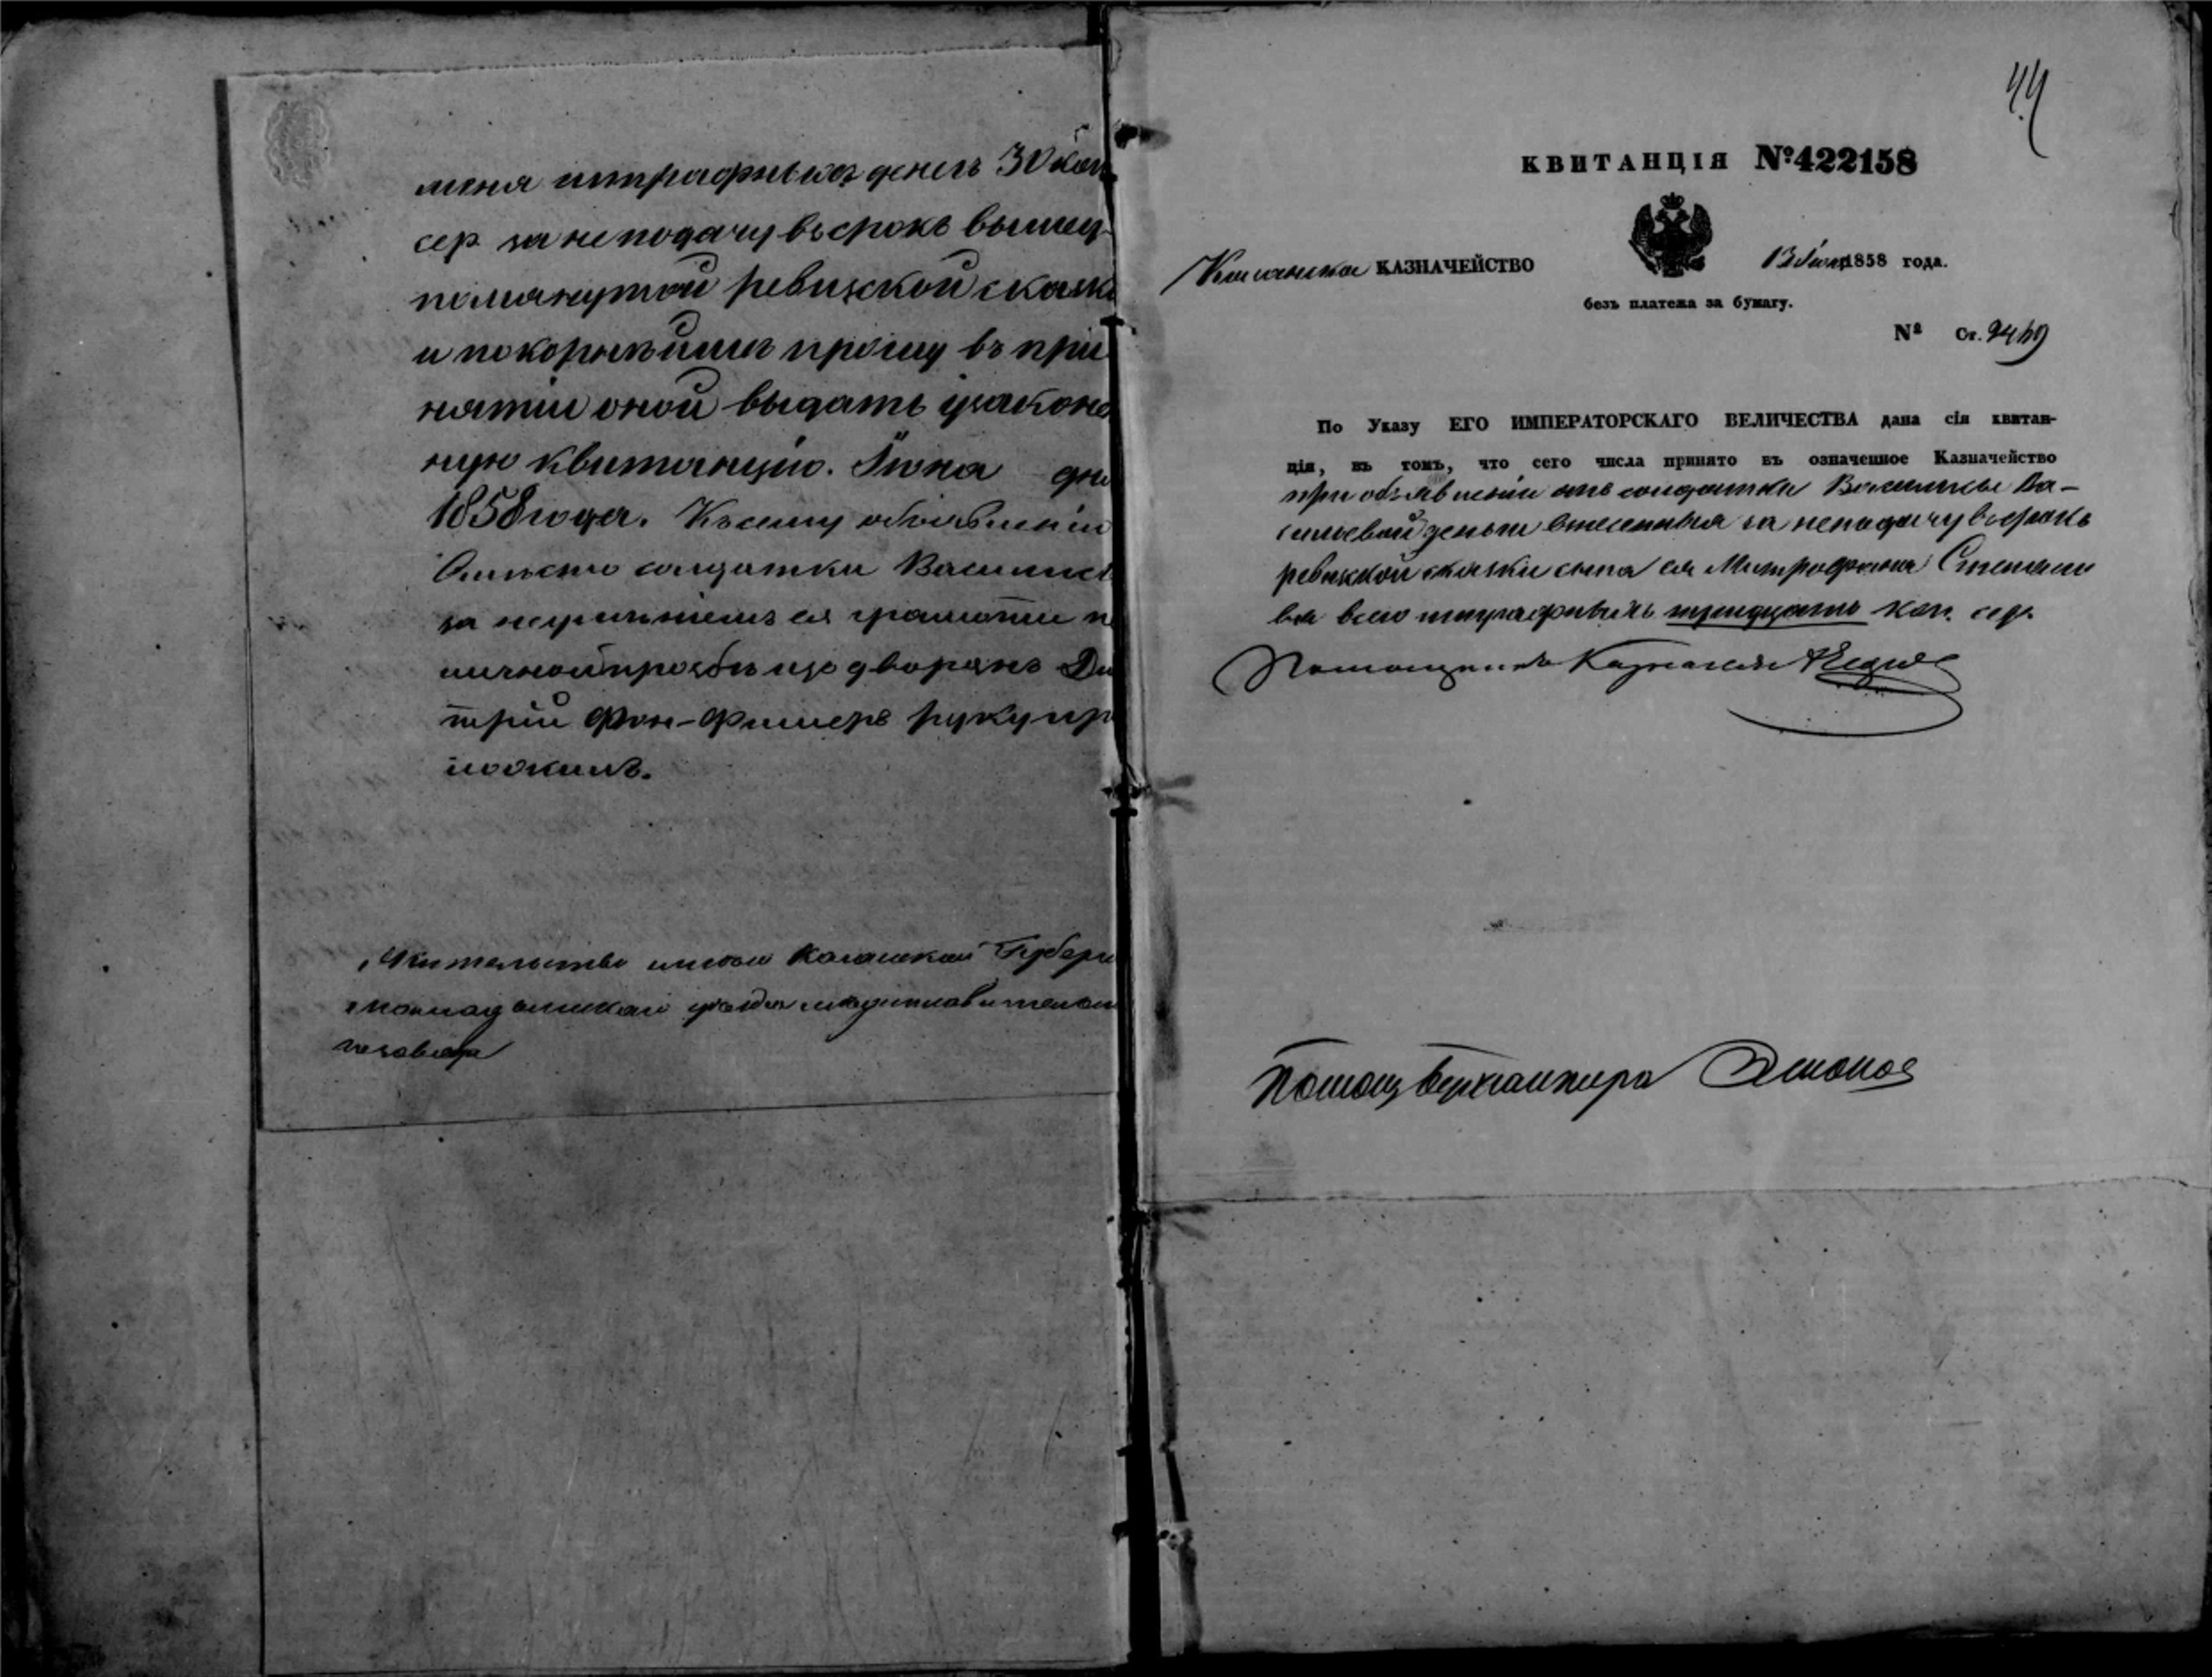 меня штрафныхъ денегъ 30 коп
сер за неподачу въ срокъ вышеу-
помянутой ревизской сказк
и покорнѣише прошу въ при
нятіи оной выдать узаконе
ную квитанцію. Іюня дня
1858 года. Къ сему объявленію
вмѣсто солдатки Василис
за неумѣніемъ ея грамоты п
личной прозьбѣ изъ дворянъ Дм
трій Фон-Фишеръ руку пр
ложилъ.
Жительство имѣю Казанской Губерн
уѣзда
44
КВИТАНЦІЯ №422158
КАЗНАЧЕЙСТВО 13 Іюня 1858 года.
безъ платежа за бумагу.
№ Ст.
По Указу ЕГО ИМПЕРАТОРСКАГО ВЕЛИЧЕСТВА дана сія квитан-
ція, въ томъ, что сего числа принято въ означенное Казначейство
при объявленіи отъ солдатки Василисы Ва-
сильевой деньги внесенныя за неподачу въ срокъ
ревизской сказки сына ея Митрофана Степано
ва всего штрафныхъ тридцать коп. сер.
Помощникъ Казначея
Помощ Бухгалтера